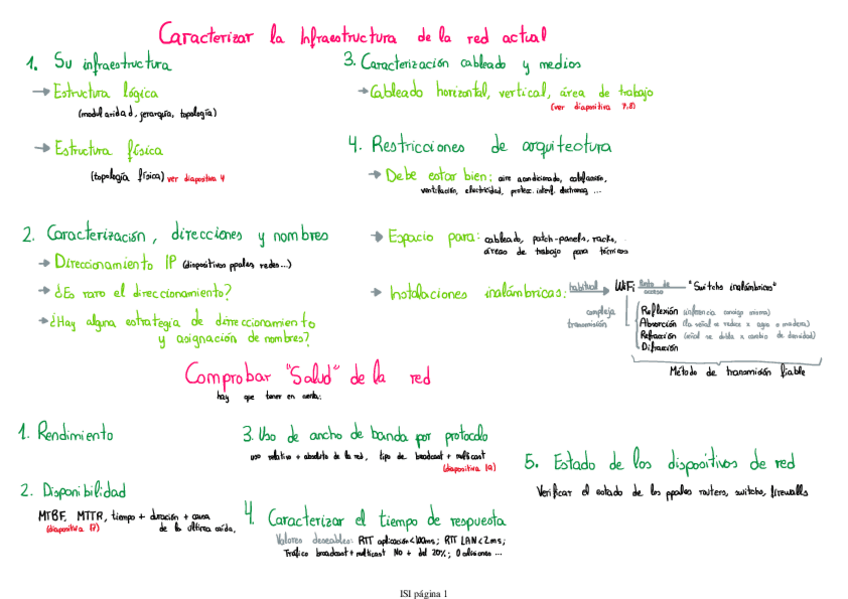 Caracterizar la Infraestructura de la red actual
1. Su infraestructura
→ Estructura lógica
(modularidad, jerarquía, topología)
→ Estructura física
(topología física) ver diapositiva 4
2. Caracterización, direcciones y nombres
→ Direccionamiento IP (dispositivos ppales redes...)
→ ¿Es raro el direccionamiento?
→ ¿Hay alguna estrategia de direccionamiento
y asignación de nombres?
3. Caracterización cableado y medios
→ Cableado horizontal, vertical, área de trabajo
(ver diapositiva 7,8)
4. Restricciones de arquitectura
→ Debe estar bien: aire acondicionado, calefacción,
ventilación, electricidad, protec. interf. electromag, ...
→ Espacio para: cableado, patch-panels, racks,
áreas de trabajo para técnicos
→ Instalaciones inalámbricas: habitual → WiFi Punto de acceso "Switchs inalámbricos"
compleja transmisión
Reflexión (inferencia consigo misma)
Absorción (la señal se reduce x agua o madera)
Refracción (señal se dobla x cambio de densidad)
Difracción
Método de transmisión fiable
Comprobar "Salud" de la red
hay que tener en cuenta:
1. Rendimiento
2. Disponibilidad
MTBF, MTTR, tiempo + duración + causa
(diapositiva 17) de la última caída,
3. Uso de ancho de banda por protocolo
uso relativo + absoluto de la red, tipo de broadcast + multicast
(diapositiva 19)
4. Caracterizar el tiempo de respuesta
Valores deseables: RTT aplicación<100ms; RTT LAN<2ms;
Tráfico broadcast + multicast No + del 20%; 0 colisiones ...
5. Estado de los dispositivos de red
Verificar el estado de los ppales routers, switchs, firewalls
ISI página 1